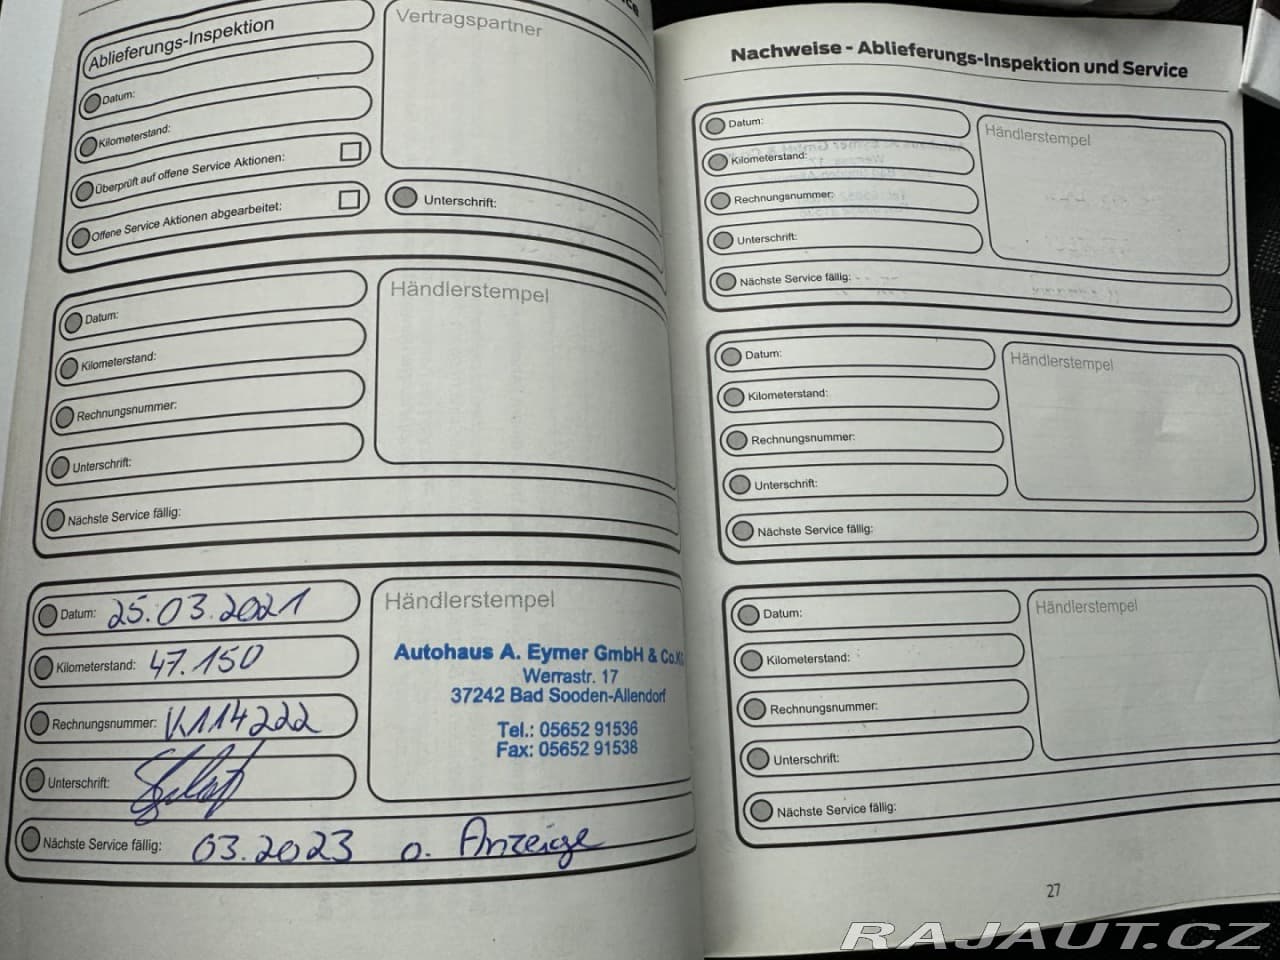 Ablieferungs-Inspektion
Datum:
Kilometerstand:
Überprüft auf offene Service Aktionen:
Offene Service Aktionen abgearbeitet:
Vertragspartner
Unterschrift:
Datum:
Kilometerstand:
Rechnungsnummer:
Unterschrift:
Nächste Service fällig:
Händlerstempel
Datum: 25.03.2021
Kilometerstand: 47.150
Rechnungsnummer: K114222
Unterschrift:
Nächste Service fällig: 03.2023 o. Anzeige
Händlerstempel
Autohaus A. Eymer GmbH & Co.
Werrastr. 17
37242 Bad Sooden-Allendorf
Tel.: 05652 91536
Fax: 05652 91538
Nachweise - Ablieferungs-Inspektion und Service
Datum:
Kilometerstand:
Rechnungsnummer:
Unterschrift:
Nächste Service fällig:
Händlerstempel
Datum:
Kilometerstand:
Rechnungsnummer:
Unterschrift:
Nächste Service fällig:
Händlerstempel
Datum:
Kilometerstand:
Rechnungsnummer:
Unterschrift:
Nächste Service fällig:
Händlerstempel
27
RAJAUT.CZ